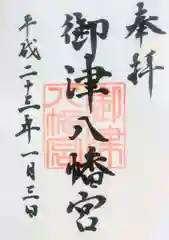 奉拝
御津八幡宮
平成二十三年一月三日
御津八幡宮